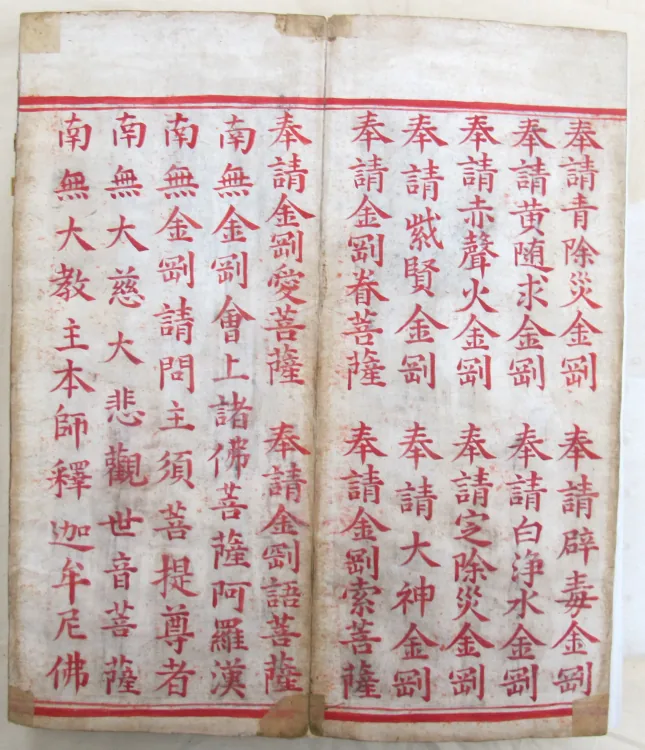 奉請青除災金剛　奉請辟毒金剛
奉請黄随求金剛　奉請白淨水金剛
奉請赤聲火金剛　奉請定除災金剛
奉請紫賢金剛　奉請大神金剛
奉請金剛眷菩薩　奉請金剛索菩薩
奉請金剛愛菩薩　奉請金剛語菩薩
南無金剛會上諸佛菩薩阿羅漢
南無金剛請問主須菩提尊者
南無大慈大悲觀世音菩薩
南無大教主本師釋迦牟尼佛